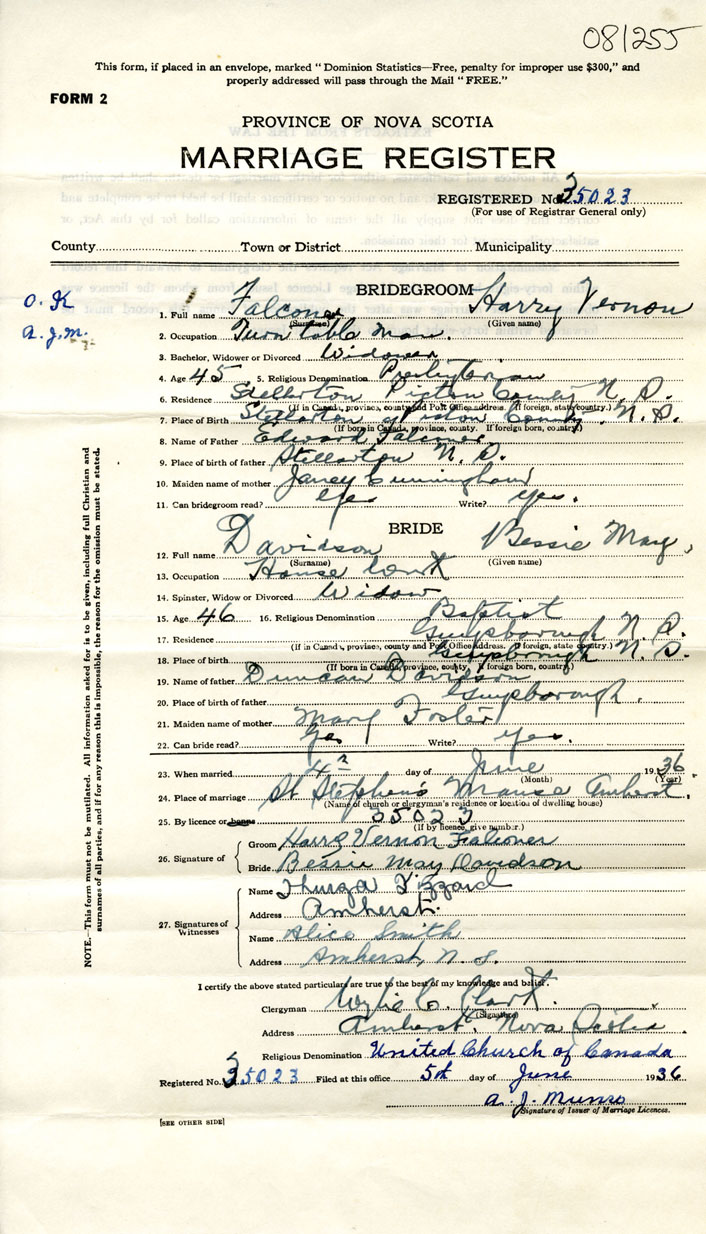 081255
This form, if placed in an envelope, marked "Dominion Statistics—Free, penalty for improper use $300," and
properly addressed will pass through the Mail "FREE."
FORM 2
PROVINCE OF NOVA SCOTIA
MARRIAGE REGISTER
REGISTERED No. 35023
(For use of Registrar General only)
County Town or District Municipality
O. K
A. J. M.
BRIDEGROOM
1. Full name Falconer Harry Vernon
(Surname) (Given name)
2. Occupation Turn table Man.
3. Bachelor, Widower or Divorced Widower
4. Age 45 5. Religious Denomination Presbyterian
6. Residence Stellarton Pictou County N. S.
(If in Canada, province, county and Post Office address. If foreign, state country.)
7. Place of Birth Stellarton Pictou County N. S.
(If born in Canada, province, county. If foreign born, country)
8. Name of Father Edward Falconer
9. Place of birth of father Stellarton N. S.
10. Maiden name of mother Janey Cunningham
11. Can bridegroom read? Yes Write? Yes.
BRIDE
12. Full name Davidson Bessie May,
(Surname) (Given name)
13. Occupation House Work
14. Spinster, Widow or Divorced Widow
15. Age 46 16. Religious Denomination Baptist
17. Residence Guysborough N. S.
(If in Canada, province, county and Post Office Address. If foreign, state country.)
18. Place of birth Guysborough N. S.
(If born in Canada, province, county, If foreign born, country)
19. Name of father Duncan Davidson
20. Place of birth of father Guysborough.
21. Maiden name of mother Mary Foster
22. Can bride read? Yes Write? Yes.
23. When married 4th day of June 1936
(Month) (Year)
24. Place of marriage St Stephen's Manse Amherst.
(Name of church or clergyman's residence or location of dwelling house)
25. By licence or banns 35023
(If by licence, give number.)
26. Signature of
Groom Harry Vernon Falconer
Bride Bessie May Davidson
27. Signatures of Witnesses
Name Thurza Tizzard
Address Amherst.
Name Alice Smith
Address Amherst, N. S.
I certify the above stated particulars are true to the best of my knowledge and belief.
Clergyman Wylie C. Clark.
(Signature)
Address Amherst. Nova Scotia.
Religious Denomination United Church of Canada
Registered No. 35023 Filed at this office 5th day of June 1936
A. J. Munro
Signature of Issuer of Marriage Licences.
[SEE OTHER SIDE]
NOTE.—This form must not be mutilated. All information asked for is to be given, including full Christian and
surnames of all parties, and if for any reason this is impossible, the reason for the omission must be stated.